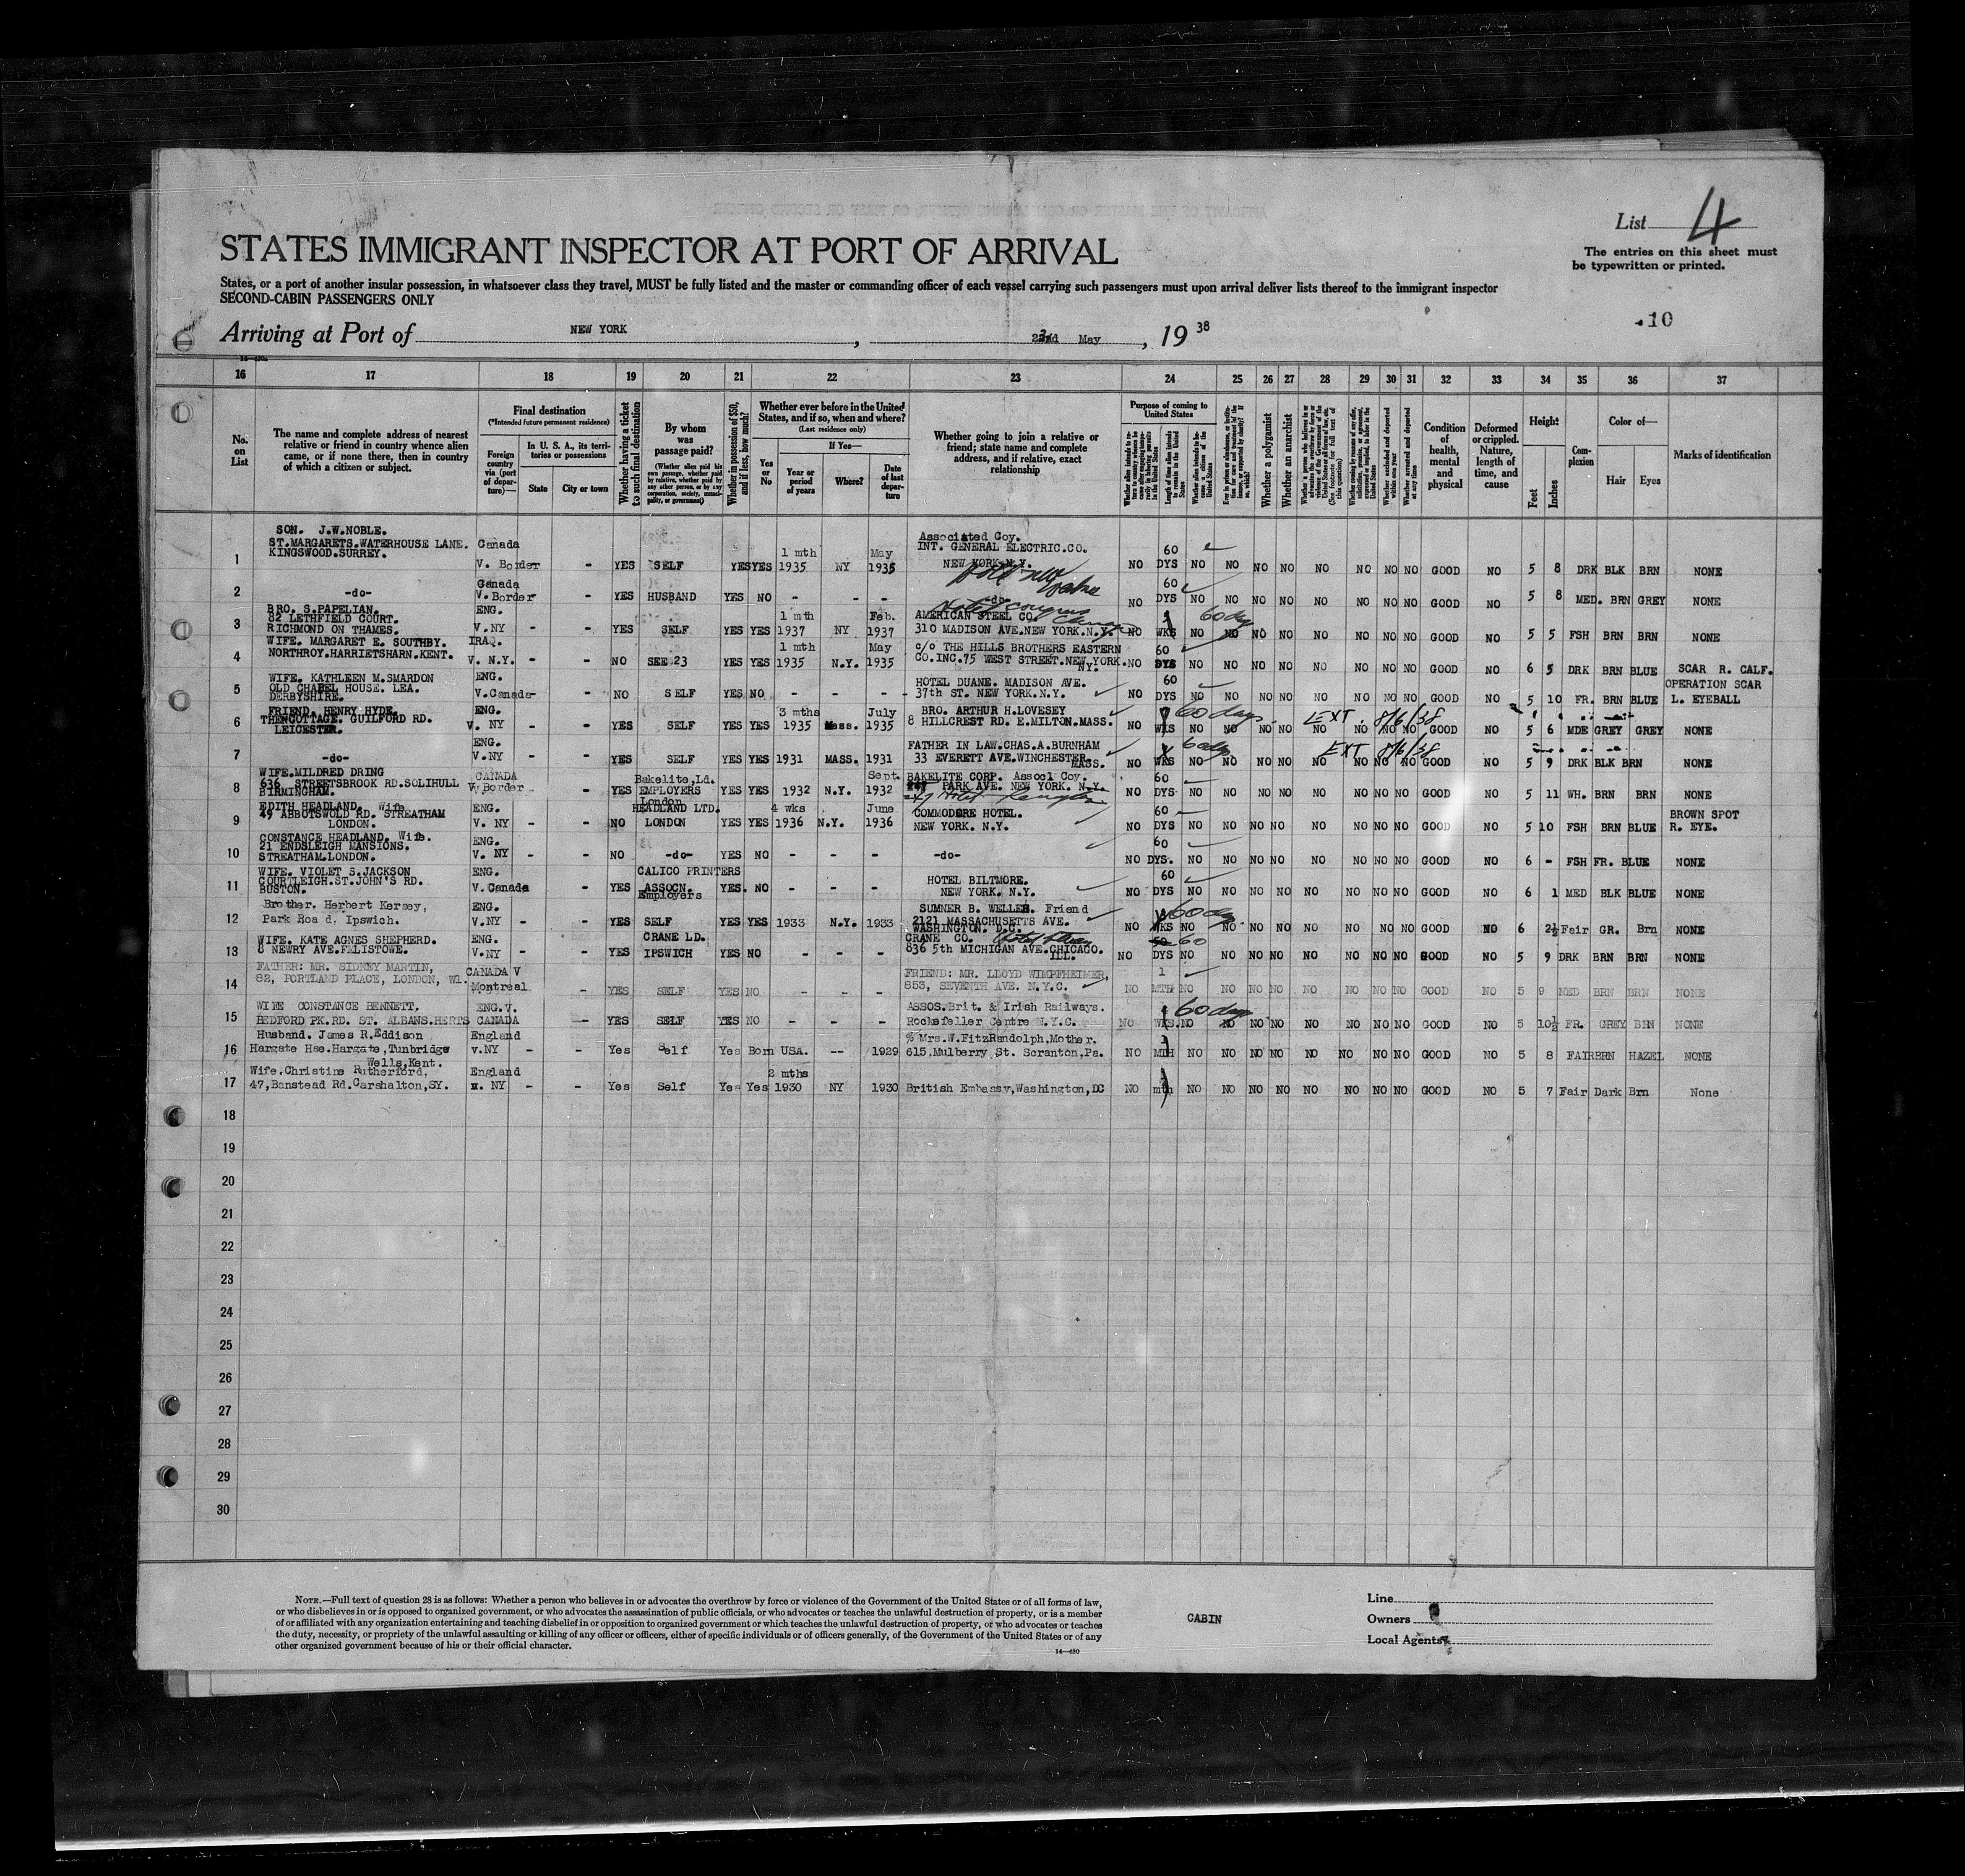 List 4
The entries on this sheet must
be typewritten or printed.
STATES IMMIGRANT INSPECTOR AT PORT OF ARRIVAL
States, or a port of another insular possession, in whatsoever class they travel, MUST be fully listed and the master or commanding officer of each vessel carrying such passengers must upon arrival deliver lists thereof to the immigrant inspector
SECOND-CABIN PASSENGERS ONLY
10
Arriving at Port of NEW YORK, May, 19 38
16 17 18 19 20 21 22 23 24 25 26 27 28 29 30 31 32 33 34 35 36 37
No. on List
The name and complete address of nearest relative or friend in country whence alien came, or if none there, then in country of which a citizen or subject.
Final destination
(*Intended future permanent residence)
Foreign country via (port of departure)—
In U. S. A., its territories or possessions
State
City or town
Whether having a ticket to such final destination
By whom was passage paid?
(Whether alien paid his own passage, whether paid by relative, whether paid by any other person, or by any corporation, society, municipality, or government)
Whether in possession of $50, and if less, how much?
Whether ever before in the United States, and if so, when and where?
(Last residence only)
Yes or No
If Yes—
Year or period of years
Where?
Date of last departure
Whether going to join a relative or friend; state name and complete address, and if relative, exact relationship
Purpose of coming to United States
Length of time alien intends to remain in the United States
Whether alien intends to become a citizen of the United States
Whether a polygamist
Whether an anarchist
Whether excluded and deported within one year
Whether arrested and deported at any time
Condition of health, mental and physical
Deformed or crippled. Nature, length of time, and cause
Height
Feet
Inches
Complexion
Color of—
Hair
Eyes
Marks of identification
1 SON. J.W.NOBLE. ST.MARGARETS.WATERHOUSE LANE. KINGSWOOD.SURREY. Canada V. Border - YES SELF YES YES 1 mth 1935 NY May 1935 Associated Coy. INT. GENERAL ELECTRIC.CO. NEW YORK.N.Y. NO 60 DYS NO NO NO NO NO NO NO NO GOOD NO 5 8 DRK BLK BRN NONE
2 -do- Canada V.Border - YES HUSBAND YES NO - - - -do- NO 60 DYS NO NO NO NO NO NO NO NO GOOD NO 5 8 MED. BRN GREY NONE
3 BRO. S.PAPELIAN. 82 LETHFIELD COURT. RICHMOND ON THAMES. ENG. V.NY - - YES SELF YES YES 1 mth 1937 NY Feb. 1937 AMERICAN STEEL CO. 310 MADISON AVE.NEW YORK.N.Y. NO WKS 60 days NO NO NO NO NO NO NO NO GOOD NO 5 5 FSH BRN BRN NONE
4 WIFE. MARGARET E. SOUTHBY. NORTHROY.HARRIETSHARN.KENT. IRAQ. V. N.Y. - - NO SEE 23 YES YES 1 mth 1935 N.Y. May 1935 c/o THE HILLS BROTHERS EASTERN CO.INC.75 WEST STREET.NEW YORK. NY. NO 60 DYS NO NO NO NO NO NO NO NO GOOD NO 6 5 DRK BRN BLUE SCAR R. CALF.
5 WIFE. KATHLEEN M.SMARDON OLD CHAPEL HOUSE. LEA. DERBYSHIRE. ENG. V.Canada - - NO SELF YES NO - - - - HOTEL DUANE. MADISON AVE. 37th ST. NEW YORK.N.Y. NO 60 DYS NO NO NO NO NO NO NO NO GOOD NO 5 10 FR. BRN BLUE OPERATION SCAR L. EYEBALL
6 FRIEND. HENRY HYDE. GUILFORD RD. LEICESTER. ENG. V. NY - - YES SELF YES YES 3 mths 1935 Mass. July 1935 BRO. ARTHUR H.LOVESEY 8 HILLCREST RD. E.MILTON.MASS. NO WKS 60 days. NO NO NO NO NO NO NO NO EXT. 8/6/38 GOOD NO 5 6 MDE GREY GREY NONE
7 -do- ENG. V.NY - - YES SELF YES YES 1931 MASS. 1931 FATHER IN LAW.CHAS.A.BURNHAM 33 EVERETT AVE.WINCHESTER. MASS. NO WKS 60 days NO NO NO NO NO NO NO NO EXT 8/6/38 GOOD NO 5 9 DRK BLK BRN NONE
8 WIFE.MILDRED DRING 636 STREETSBROOK RD.SOLIHULL BIRMINGHAM. CANADA V.Border - YES Bakelite,Ld. EMPLOYERS London YES YES 1932 N.Y. Sept. 1932 BAKELITE CORP. Assocl Coy. PARK AVE. NEW YORK. N.Y. NO 60 DYS NO NO NO NO NO NO NO NO GOOD NO 5 11 WH. BRN BRN NONE
9 EDITH HEADLAND. Wife 49 ABBOTSWOLD RD. STREATHAM LONDON. ENG. V. NY - - NO HEADLAND LTD. LONDON YES YES 4 wks 1936 N.Y. June 1936 COMMODORE HOTEL. NEW YORK. N.Y. NO 60 DYS NO NO NO NO NO NO NO NO GOOD NO 5 10 FSH BRN BLUE BROWN SPOT R. EYE.
10 CONSTANCE HEADLAND. Wife. 21 ENDSLEIGH MANSIONS. STREATHAM.LONDON. ENG. V. NY - - NO -do- YES NO - - - -do- NO 60 DYS. NO NO NO NO NO NO NO NO GOOD NO 6 - FSH FR. BLUE NONE
11 WIFE. VIOLET S.JACKSON COURTLEIGH.ST.JOHN'S RD. BUSTON. ENG. V.Canada - YES CALICO PRINTERS ASSOCN. Employers YES. NO - - - HOTEL BILTMORE. NEW YORK. N.Y. NO 60 DYS NO NO NO NO NO NO NO NO GOOD NO 6 1 MED BLK BLUE NONE
12 Brother. Herbert Kersey, Park Road. Ipswich. ENG. V.NY - - YES SELF YES YES 1933 N.Y. 1933 SUMNER B. WELLES. Friend 2121 MASSACHUSETTS AVE. WASHINGTON. D.C. NO WKS 60 days NO NO NO NO NO NO NO NO GOOD NO 6 2½ Fair GR. Brn NONE
13 WIFE. KATE AGNES SHEPHERD. 8 NEWRY AVE.FELISTOWE. ENG. V.NY - - YES CRANE LD. IPSWICH YES NO - - - CRANE CO. 836 5th MICHIGAN AVE.CHICAGO. ILL. NO 60 DYS NO NO NO NO NO NO NO NO GOOD NO 5 9 DRK BRN BRN NONE
14 FATHER: MR. SIDNEY MARTIN, 82, PORTLAND PLACE, LONDON, W1. CANADA V Montreal - YES SELF YES NO - - - FRIEND: MR. LLOYD WIMPFHEIMER, 853, SEVENTH AVE. N.Y.C. NO 1 MTH NO NO NO NO NO NO NO NO GOOD NO 5 9 MED BRN BRN NONE
15 WIFE CONSTANCE BENNETT. BEDFORD PK.RD. ST. ALBANS.HERTS ENG.V. CANADA - YES SELF YES NO - - - ASSOS.Brit. & Irish Railways. Rockefeller Centre N.Y.C. NO WKS. 60 days NO NO NO NO NO NO NO NO GOOD NO 5 10½ FR. GREY BRN NONE
16 Husband. James R.Eddison Hargate Hse.Hargate,Tunbridge Wells,Kent. England v.NY - - Yes Self Yes Born USA. -- 1929 % Mrs.W.FitzRandolph,Mother. 615.Mulberry St. Scranton,Pa. NO MTH NO NO NO NO NO NO NO NO GOOD NO 5 8 FAIR BRN HAZEL NONE
17 Wife.Christine Rutherford, 47,Banstead Rd.Carshalton,SY. England v. NY - - Yes Self Yes Yes 2 mths 1930 NY 1930 British Embassy,Washington,DC NO mth NO NO NO NO NO NO NO NO GOOD NO 5 7 Fair Dark Brn None
18
19
20
21
22
23
24
25
26
27
28
29
30
NOTE.—Full text of question 28 is as follows: Whether a person who believes in or advocates the overthrow by force or violence of the Government of the United States or of all forms of law,
or who disbelieves in or is opposed to organized government, or who advocates the assassination of public officials, or who advocates or teaches the unlawful destruction of property, or is a member
of or affiliated with any organization entertaining and teaching disbelief in or opposition to organized government or which teaches the unlawful destruction of property, or who advocates or teaches
the duty, necessity, or propriety of the unlawful assaulting or killing of any officer or officers, either of specific individuals or of officers generally, of the Government of the United States or of any
other organized government because of his or their official character.
14—430
CABIN
Line
Owners
Local Agents